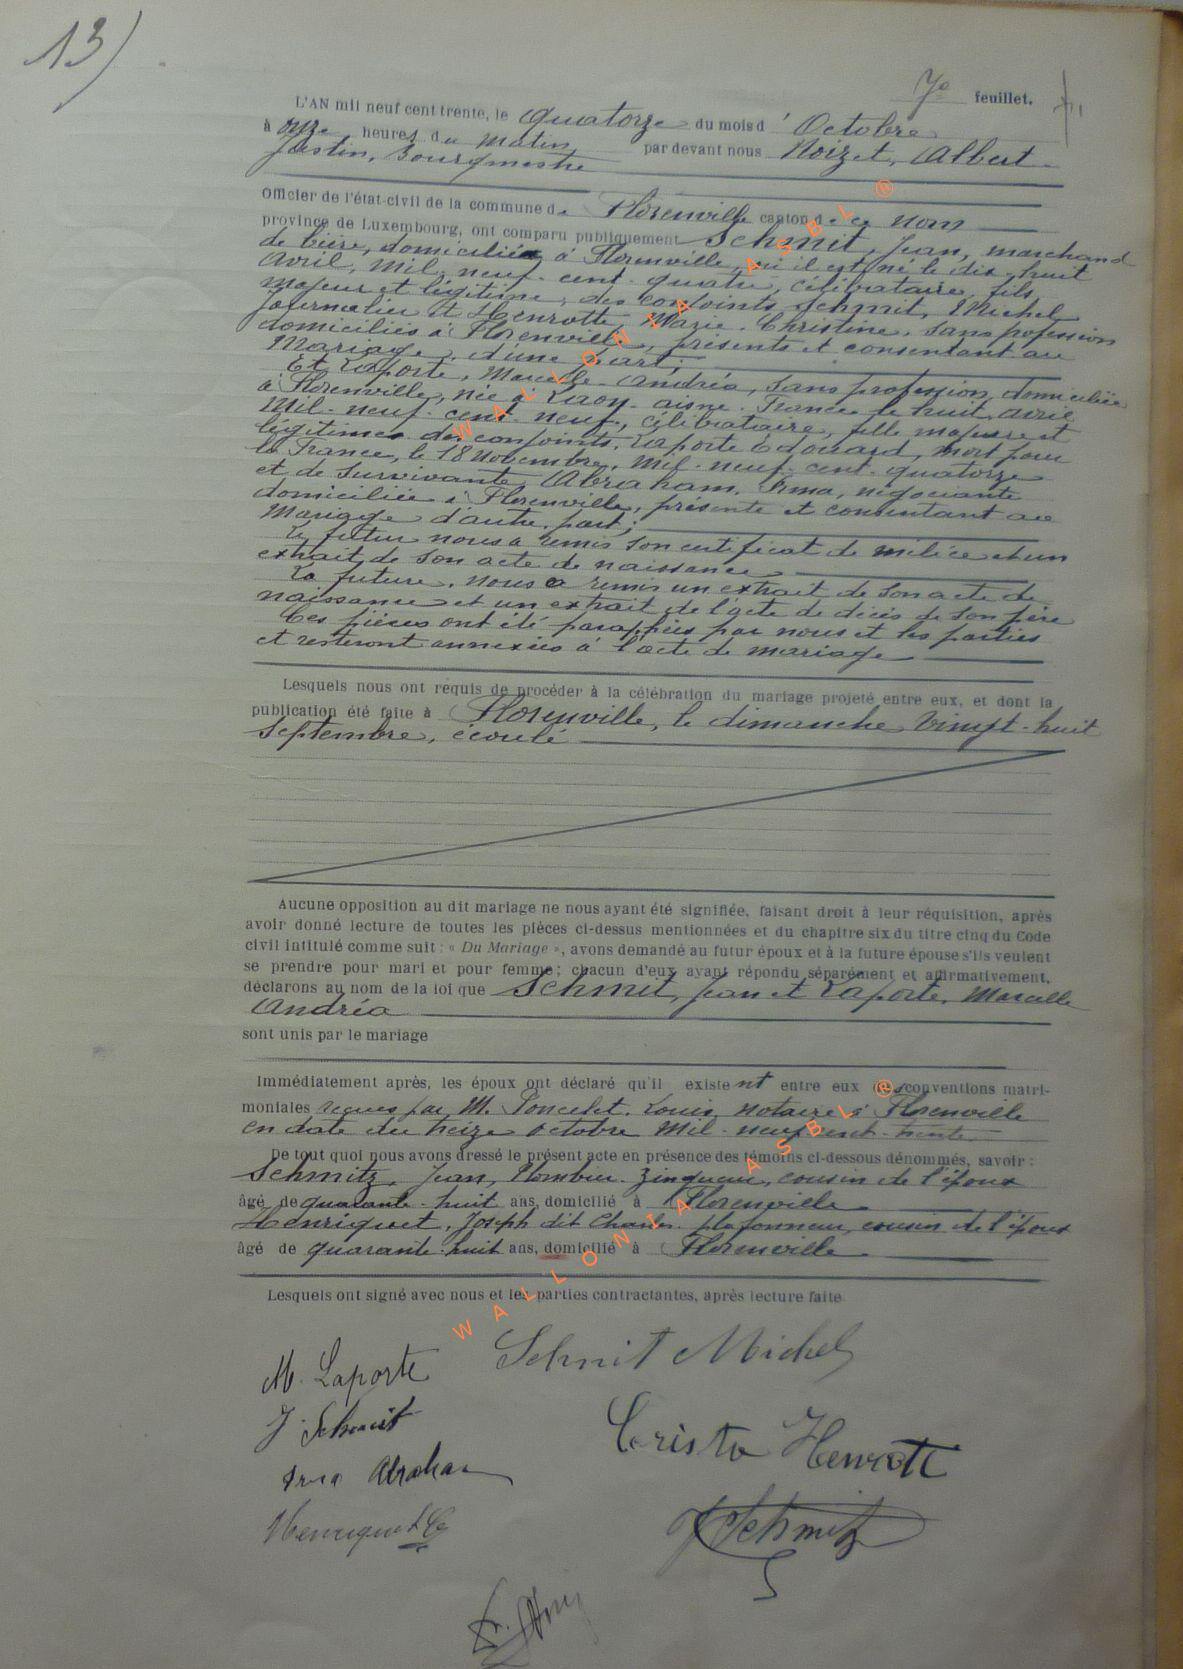 13)
7e feuillet.
L'AN mil neuf cent trente, le quatorze du mois d'Octobre
à onze heures du matin par devant nous Noizet, Albert
Justin, Bourgmestre
Officier de l'état-civil de la commune de Florenville canton de ce nom
province de Luxembourg, ont comparu publiquement Schmit, Jean, marchand
de bière, domicilié à Florenville, où il est né le dix-huit
Avril, Mil neuf cent quatre, célibataire, fils
majeur et légitime, des conjoints Schmit, Michel
Journalier et Henrotte, Marie-Christine, Sans profession
domiciliés à Florenville, présents et consentant au
Mariage, d'une part;
Et Laporte, Marcelle-Andréa, Sans profession, domiciliée
à Florenville, née à Liroy-aisne-France le huit avril
Mil-neuf-cent-neuf, célibataire, fille majeure et
légitime des conjoints, Laporte Edouard, mort pour
la France, le 18 Novembre, Mil-neuf-cent-quatorze
et de Survivante, Abraham, Irma, négociante
domiciliée à Florenville, présente et consentant au
Mariage d'autre part;
Le futur nous a remis son certificat de milice et un
extrait de Son acte de naissance
La future, nous a remis un extrait de Son acte de
naissance et un extrait de l'acte de décès de Son père
Ces pièces ont été paraphées par nous et les parties
et resteront annexées à l'acte de mariage
Lesquels nous ont requis de procéder à la célébration du mariage projeté entre eux, et dont la
publication été faite à Florenville, le dimanche Vingt-huit
Septembre, écoulé
Aucune opposition au dit mariage ne nous ayant été signifiée, faisant droit à leur réquisition, après
avoir donné lecture de toutes les pièces ci-dessus mentionnées et du chapitre six du titre cinq du Code
civil intitulé comme suit : « Du Mariage », avons demandé au futur époux et à la future épouse s'ils veulent
se prendre pour mari et pour femme ; chacun d'eux ayant répondu séparément et affirmativement,
déclarons au nom de la loi que Schmit, Jean et Laporte, Marcelle
Andréa
sont unis par le mariage
Immédiatement après, les époux ont déclaré qu'il existent entre eux des conventions matri-
moniales reçues par M. Poncelet, Louis, notaire à Florenville
en date du treize Octobre Mil-neuf-cent-trente.
De tout quoi nous avons dressé le présent acte en présence des témoins ci-dessous dénommés, savoir :
Schmitz, Jean, Plombier-Zingueur, cousin de l'époux
âgé de quarante-huit ans, domicilié à Florenville
Henriquet, Joseph dit Charles, plafonneur, cousin de l'époux
âgé de quarante-huit ans, domicilié à Florenville
Lesquels ont signé avec nous et les parties contractantes, après lecture faite
M. Laporte Schmit Michel
J. Schmit Crista Henrott
Irma Abraham
Henriquet Ch JSchmitz
WALLONIA ASBL ®
WALLONIA ASBL ®